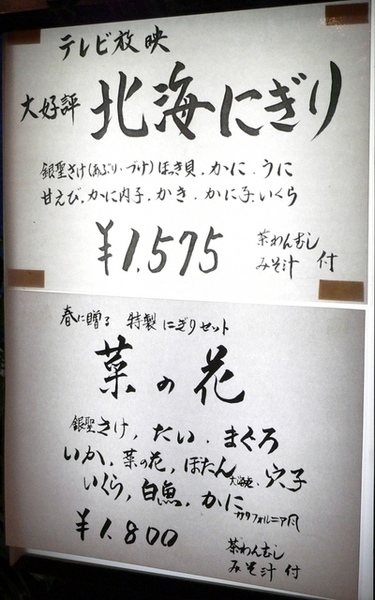 テレビ放映
大好評 北海にぎり
銀聖さけ(あぶり・づけ)ほっき貝、かに、うに
甘えび、かに内子、かき、かに子、いくら
¥1,575
茶わんむし
みそ汁 付
春に贈る 特製にぎりセット
菜の花
銀聖さけ、たい、まぐろ
いか、菜の花、ぼたん大海老、穴子
いくら、白魚、かに
カリフォルニア風
¥1,800
茶わんむし
みそ汁 付